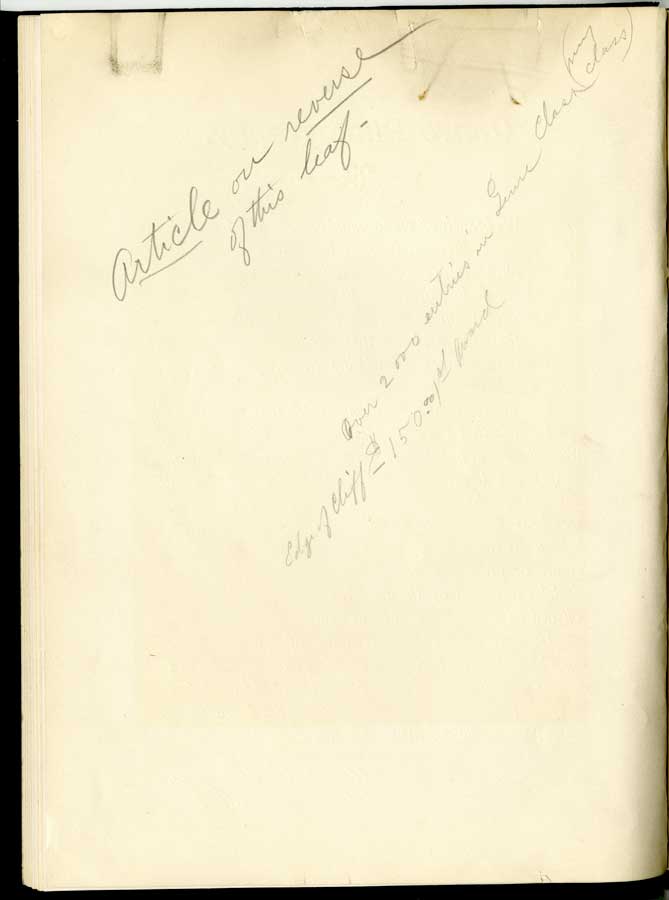 Article on reverse
of this leaf-
Over 2000 entries in Genre Class (my
class)
Edge of Cliff $150.00 1st award